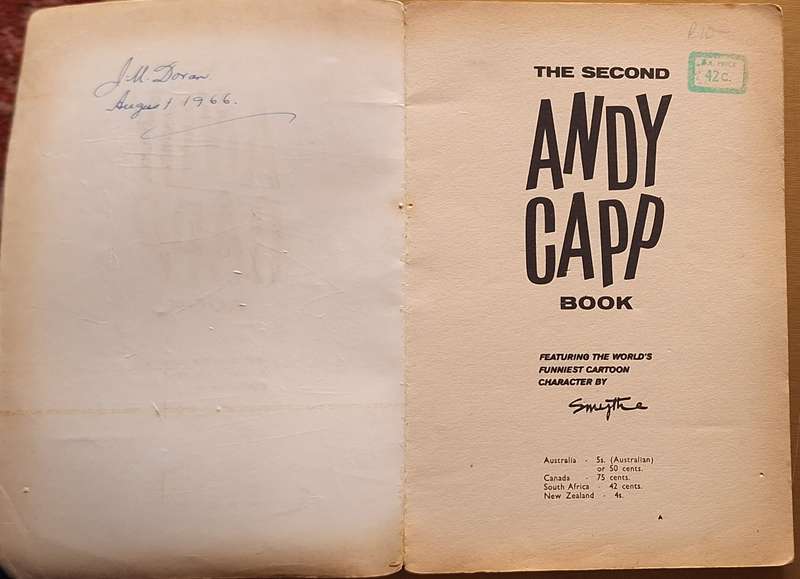 J.M. Doran
August 1966.
R10
S.A. PRICE
42c.
THE SECOND
ANDY
CAPP
BOOK
FEATURING THE WORLD'S
FUNNIEST CARTOON
CHARACTER BY
Smythe
Australia - 5s. (Australian)
or 50 cents.
Canada - 75 cents.
South Africa - 42 cents.
New Zealand - 4s.
A